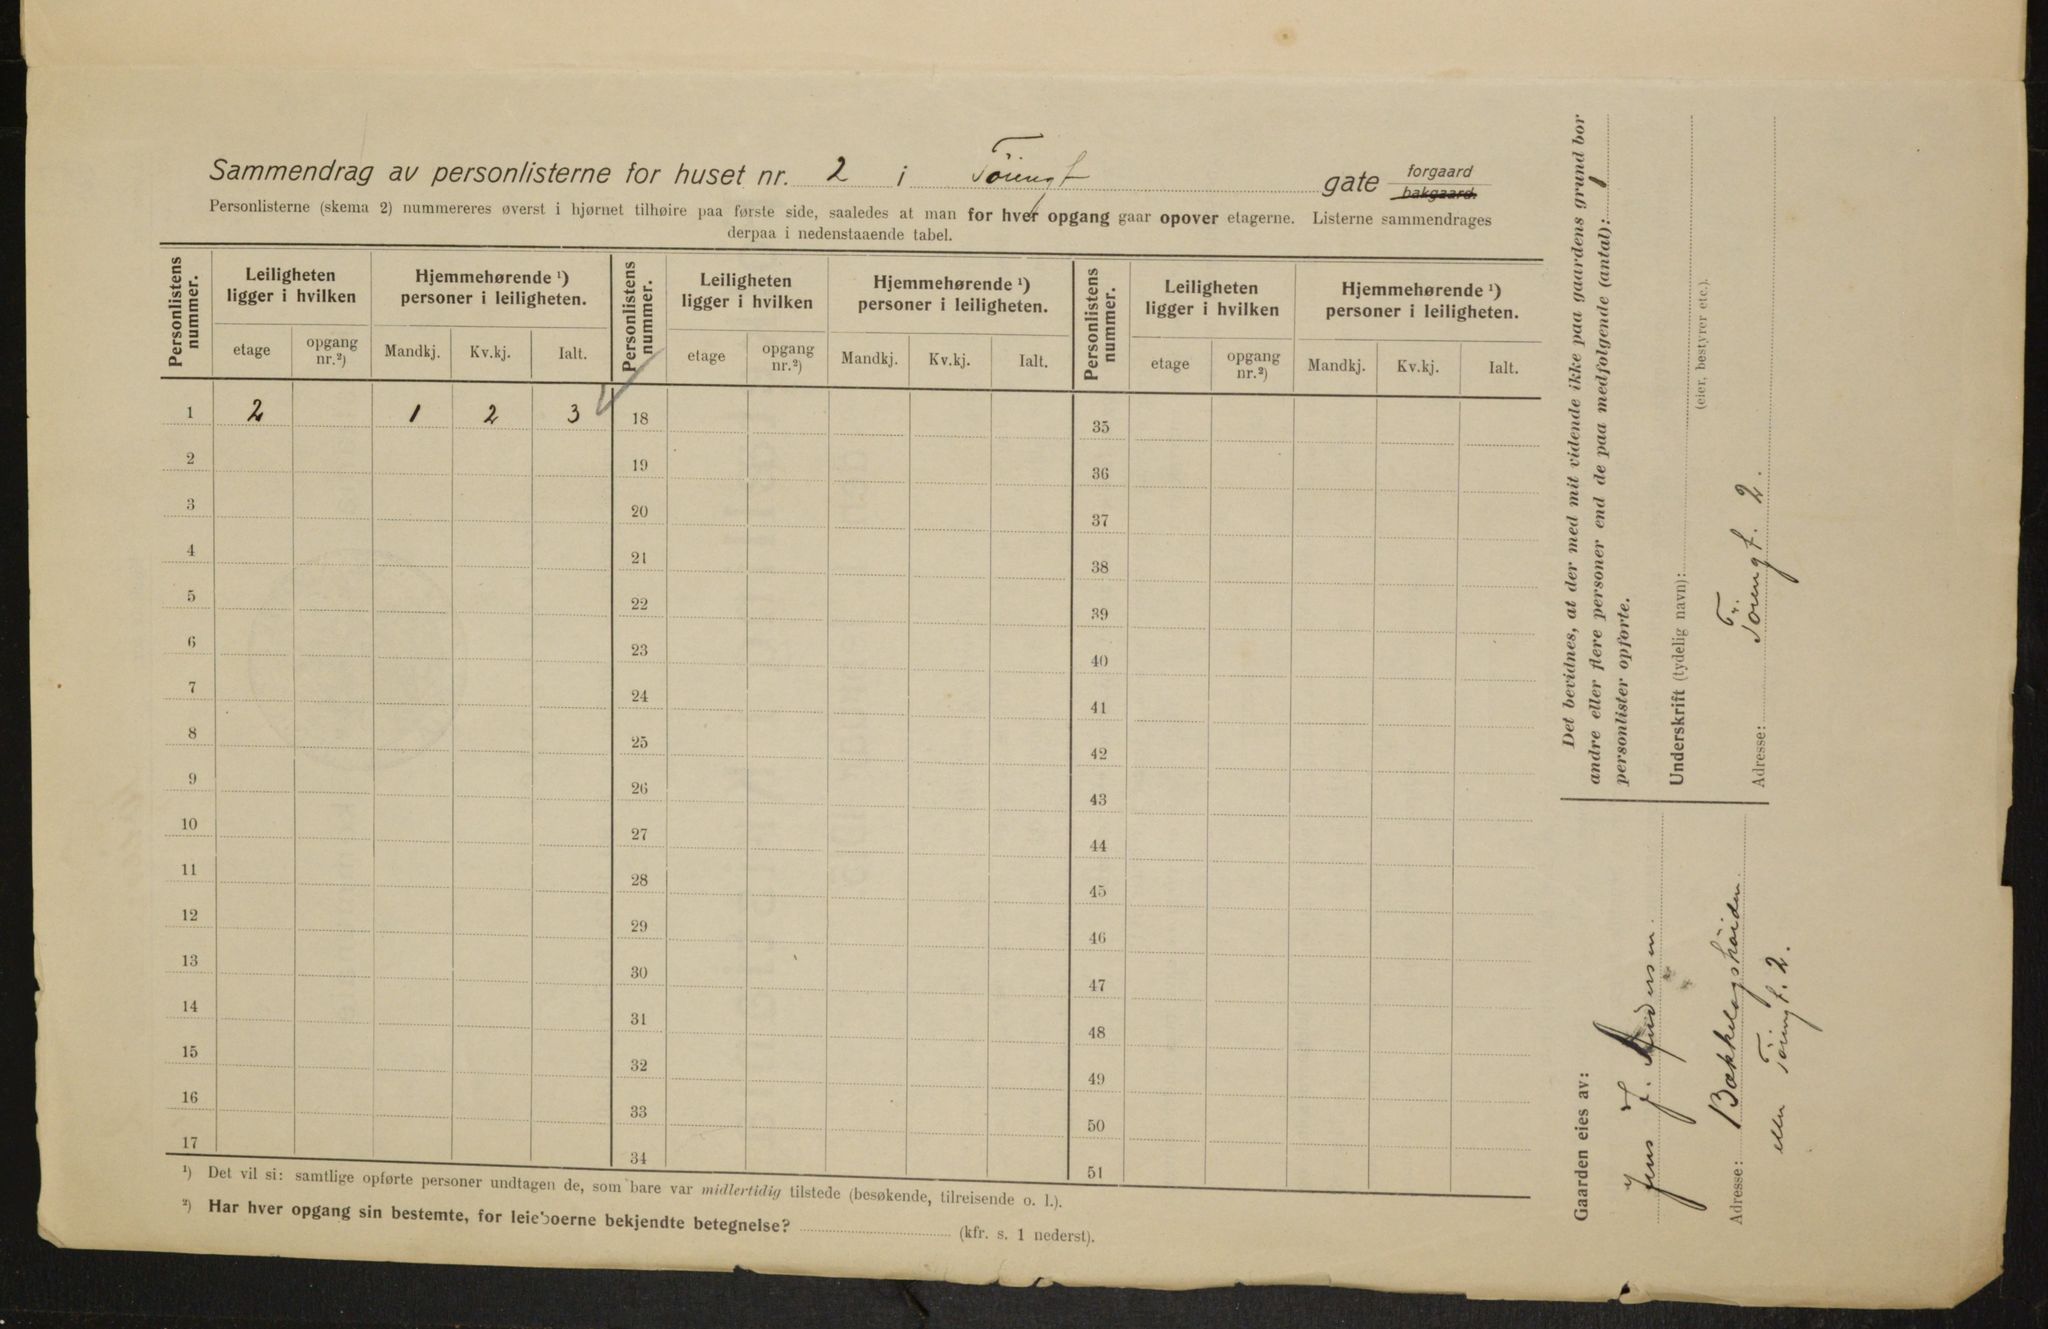 Sammendrag av personlisterne for huset nr. 2 i Töiengt gate forgaard bakgaard.
Personlisterne (skema 2) nummereres øverst i hjørnet tilhøire paa første side, saaledes at man for hver opgang gaar opover etagerne. Listerne sammendrages
derpaa i nedenstaaende tabel.
Personlistens nummer. Leiligheten ligger i hvilken Hjemmehørende ¹) personer i leiligheten. Personlistens nummer. Leiligheten ligger i hvilken Hjemmehørende ¹) personer i leiligheten. Personlistens nummer. Leiligheten ligger i hvilken Hjemmehørende ¹) personer i leiligheten.
etage opgang nr.²) Mandkj. Kv.kj. Ialt. etage opgang nr.²) Mandkj. Kv.kj. Ialt. etage opgang nr.²) Mandkj. Kv.kj. Ialt.
1 2 1 2 3 18 35
2 19 36
3 20 37
4 21 38
5 22 39
6 23 40
7 24 41
8 25 42
9 26 43
10 27 44
11 28 45
12 29 46
13 30 47
14 31 48
15 32 49
16 33 50
17 34 51
¹) Det vil si: samtlige opførte personer undtagen de, som bare var midlertidig tilstede (besøkende, tilreisende o. l.).
²) Har hver opgang sin bestemte, for leieboerne bekjendte betegnelse? (kfr. s. 1 nederst).
Det bevidnes, at der med mit vidende ikke paa gaardens grund bor
andre eller flere personer end de paa medfølgende (antal): 1
personlister opførte.
Underskrift (tydelig navn):
(eier, bestyrer etc.).
Adresse: Töiengt. 2.
Gaarden eies av:
Jens J. Andersen.
Adresse: Bækkelagshöiden.
eller Töiengt. 2.